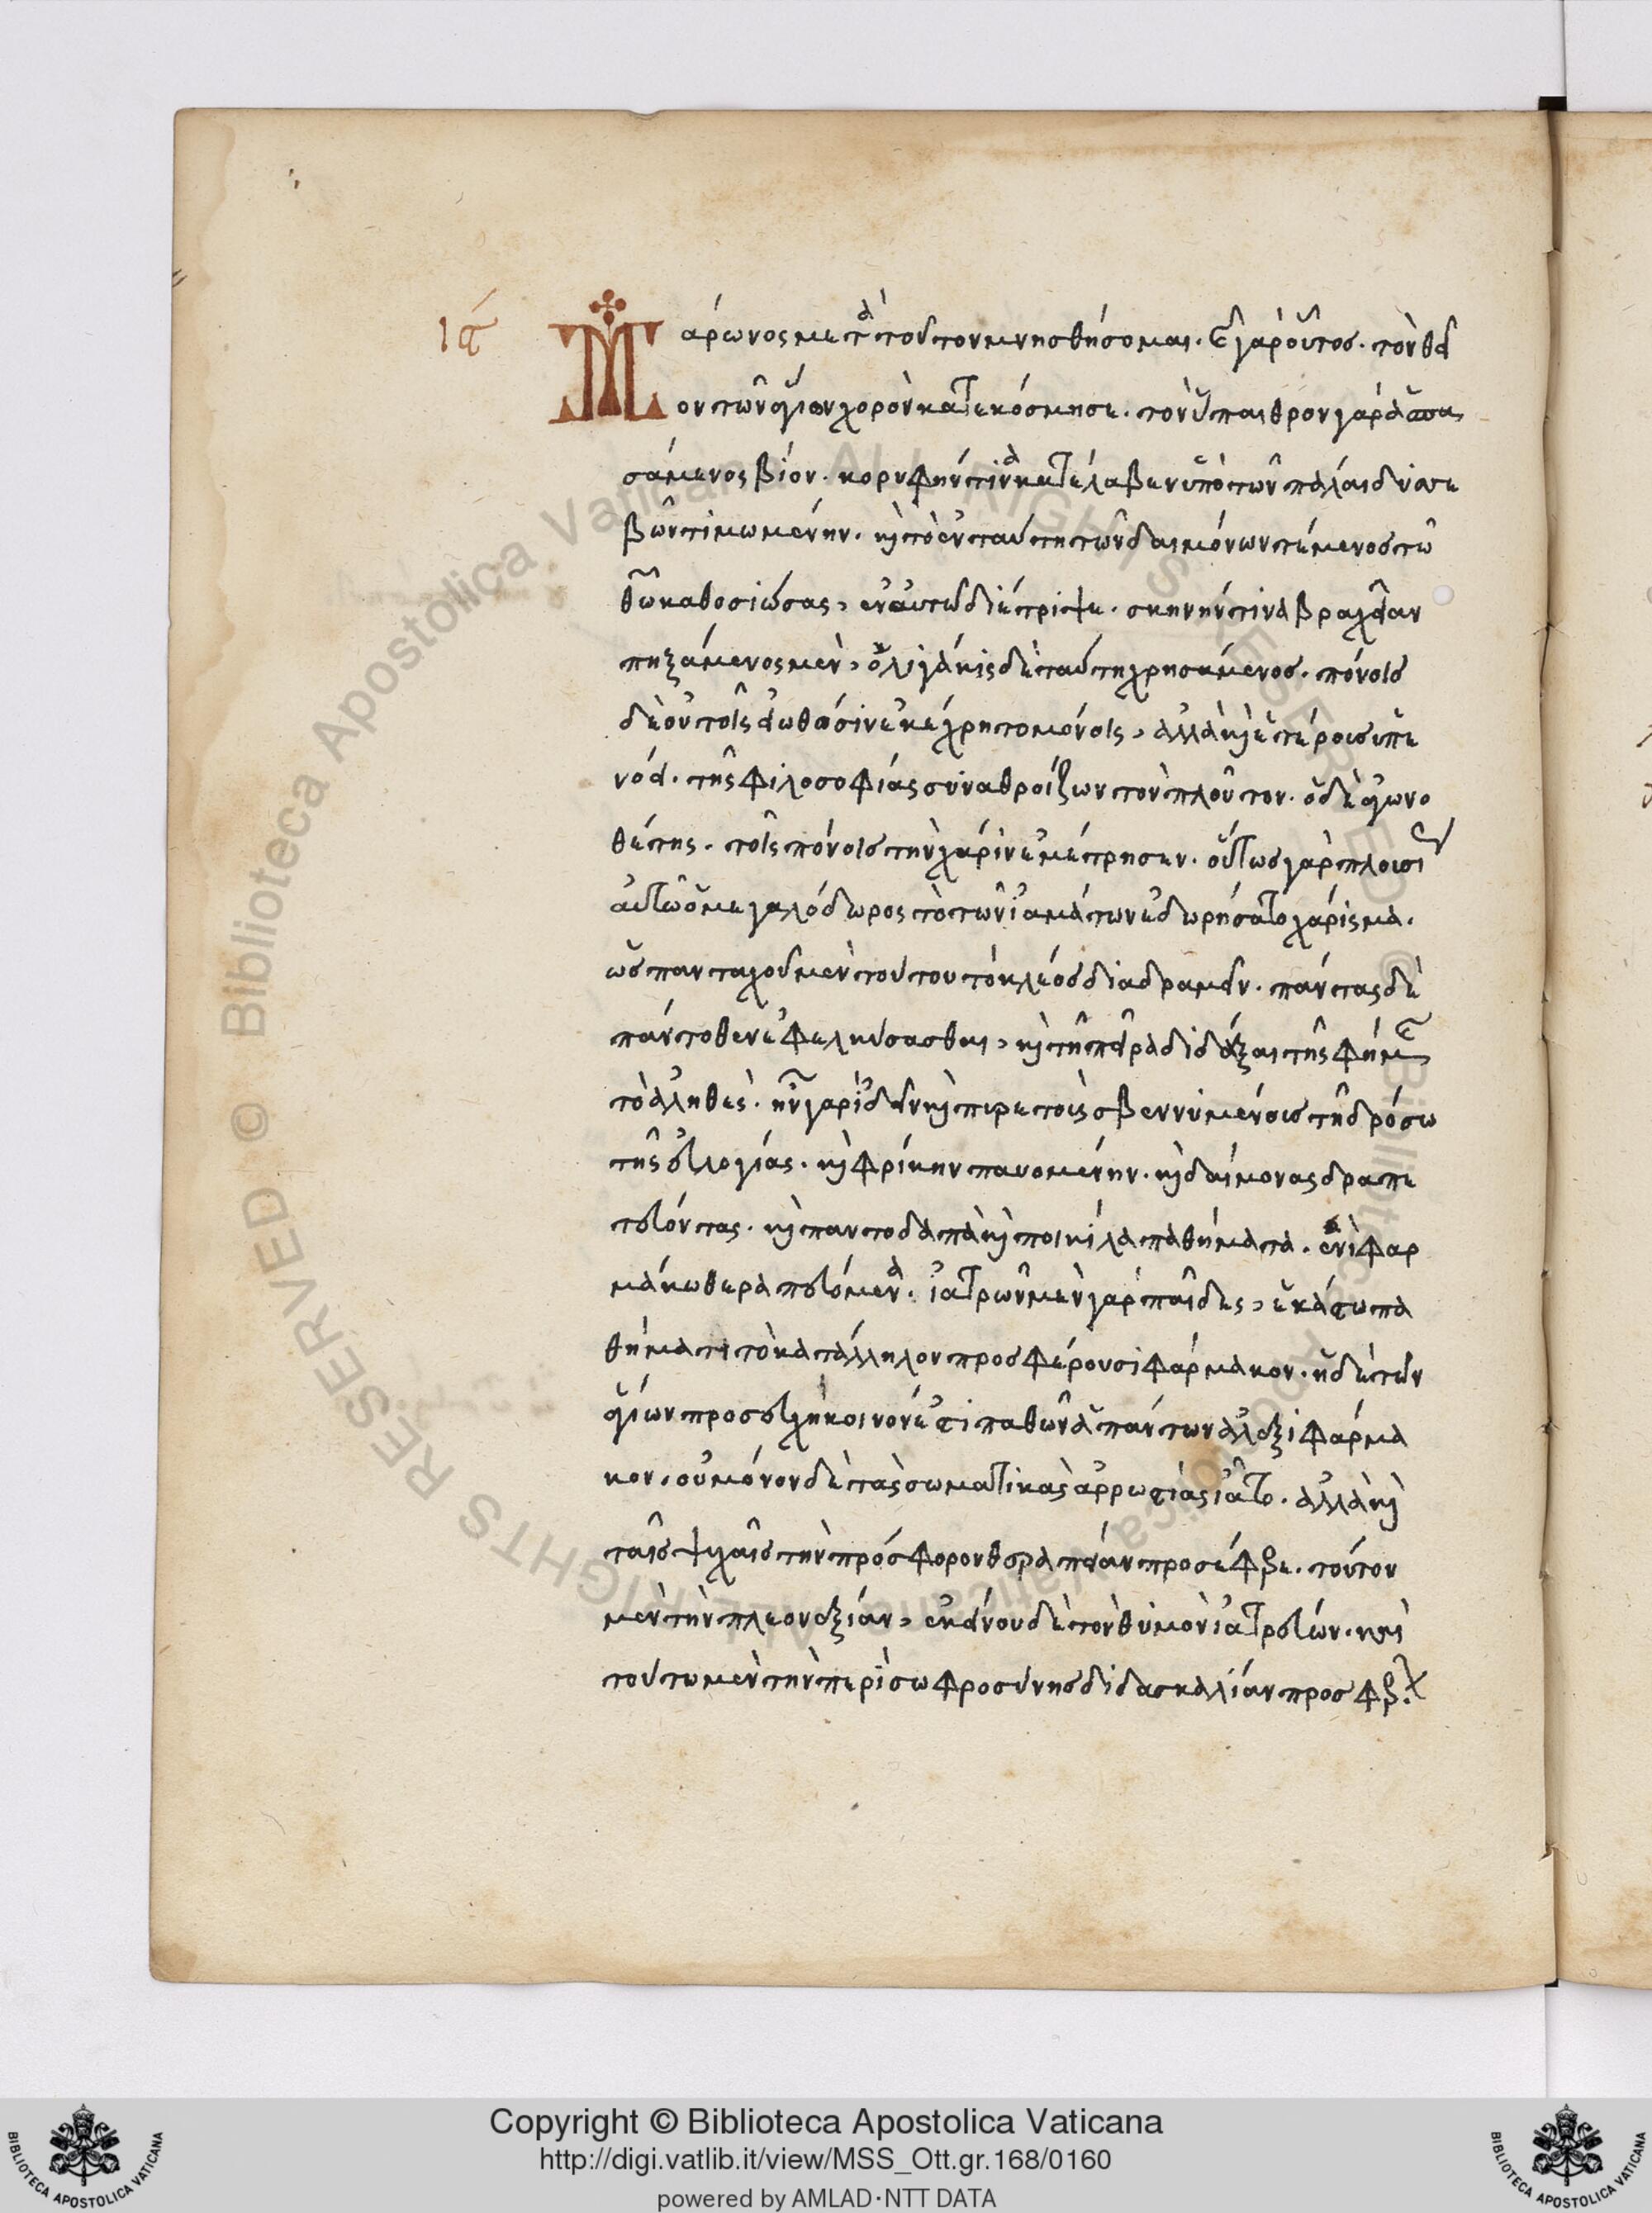 ις
Μαρωνος μετὰ τοῦτον μνησθήσομαι. καὶ γὰρ οὗτος. τὸν θεῖ
ον τῶν ἁγίων χορὸν κατεκόσμησε. τὸν ὕπαιθρον γὰρ ἀσπα
σάμενος βίον. κορυφήν τινα κατέλαβεν ὑπὸ τῶν πάλαι δυσσε
βῶν τιμωμένην. καὶ τὸ ἐν ταύτη τῶν δαιμόνων τέμενος τῶ
θεῶ καθοσιώσας, ἐν αυτῶ διέτριψε. σκηνήν τινα βραχεῖαν
πηξάμενος μὲν, ὀλιγάκις δὲ ταύτη χρησάμενος. πόνοις
δὲ οὐ τοῖς εἰωθόσιν ἐκέχρητο μόνοις, ἀλλὰ καὶ ἑτέροις ἐπε
νόει. τῆς φιλοσοφίας συναθροίζων τὸν πλοῦτον. ὁ δὲ ἀγωνο
θέτης. τοῖς πόνοις τὴν χάριν ἐμέτρησεν. οὕτως γὰρ πλουσί
αὐτῶ ὁ μεγαλόδωρος τὸ τῶν ἰαμάτων ἐδωρήσατο χάρισμα.
ὡς πανταχοῦ μὲν τούτου τὸ κλέος διαδραμεῖν. πάντας δὲ
πάντοθεν ἐφελκύσασθαι, καὶ τῆ πείρα διδάξαι τῆς φήμης
τὸ ἀληθὲς. ἦν γὰρ ἰδεῖν καὶ πυρετοὺς σβεννυμένους τῆ δρόσω
τῆς εὐλογίας. καὶ φρίκην παυομένην. καὶ δαίμονας δραπε
τεύοντας. καὶ παντοδαπὰ καὶ ποικίλα παθήματα. ἑνὶ φαρ
μάκω θεραπευόμενα. ἰατρῶν μὲν γὰρ παῖδες, ἑκάστω πα
θήματι τὸ κατάλληλον προσφέρουσι φάρμακον. ἡ δὲ τῶν
ἁγίων προσευχὴ κοινόν ἐστι παθῶν ἁπάντων ἀλεξιφάρμα
κον. οὐ μόνον δὲ τὰς σωματικὰς ἀρρωστίας ἰᾶτο. ἀλλὰ καὶ
ταῖς ψυχαῖς τὴν πρόσφορον θεραπείαν προσέφερε. τούτου
μὲν τὴν πλεονεξίαν, ἐκείνου δὲ τὸν θυμὸν ἰατρεύων. καὶ
τούτω μὲν τὴν περὶ σωφροσύνης διδασκαλίαν προσφέρ
Copyright © Biblioteca Apostolica Vaticana
http://digi.vatlib.it/view/MSS_Ott.gr.168/0160
powered by AMLAD·NTT DATA